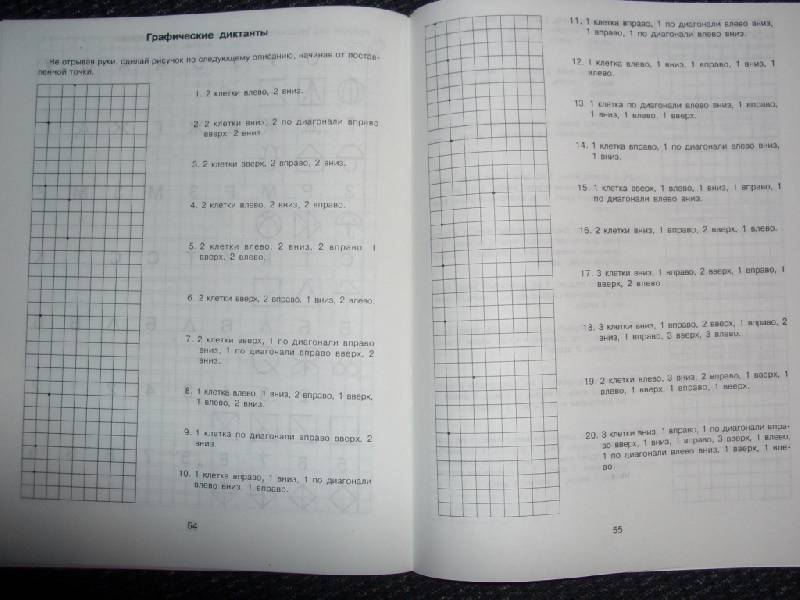 Графические диктанты
Не отрывая руки, сделай рисунок по следующему описанию, начиная от постав-
ленной точки.
1. 2 клетки влево, 2 вниз.
2. 2 клетки вниз, 2 по диагонали вправо
вверх, 2 вниз.
3. 2 клетки вверх, 2 вправо, 2 вниз.
4. 2 клетки влево, 2 вниз, 2 вправо.
5. 2 клетки влево, 2 вниз, 2 вправо, 1
вверх, 2 влево.
6. 2 клетки вверх, 2 вправо, 1 вниз, 2 влево.
7. 2 клетки вверх, 1 по диагонали вправо
вниз, 1 по диагонали вправо вверх, 2
вниз.
8. 1 клетка влево, 1 вниз, 2 вправо, 1 вверх,
1 влево, 2 вниз.
9. 1 клетка по диагонали вправо вверх, 2
вниз.
10. 1 клетка вправо, 1 вниз, 1 по диагонали
влево вниз, 1 вправо.
54
11. 1 клетка вправо, 1 по диагонали влево вниз,
1 вправо, 1 по диагонали влево вниз.
12. 1 клетка влево, 1 вниз, 1 вправо, 1 вниз, 1
влево.
13. 1 клетка по диагонали влево вниз, 1 вправо,
1 вниз, 1 влево, 1 вверх.
14. 1 клетка вправо, 1 по диагонали влево вниз,
1 вниз.
15. 1 клетка вверх, 1 влево, 1 вниз, 1 вправо, 1
по диагонали влево вниз.
16. 2 клетки вниз, 1 вправо, 2 вверх, 1 влево.
17. 3 клетки вниз, 1 вправо, 2 вверх, 1 вправо, 1
вверх, 2 влево.
18. 3 клетки вниз, 1 вправо, 2 вверх, 1 вправо, 2
вниз, 1 вправо, 3 вверх, 3 влево.
19. 2 клетки влево, 3 вниз, 2 вправо, 1 вверх, 1
влево, 1 вверх, 1 вправо, 1 вверх.
20. 3 клетки вниз, 1 вправо, 1 по диагонали впра-
во вверх, 1 вниз, 1 вправо, 3 вверх, 1 влево,
1 по диагонали влево вниз, 1 вверх, 1 вле-
во.
55